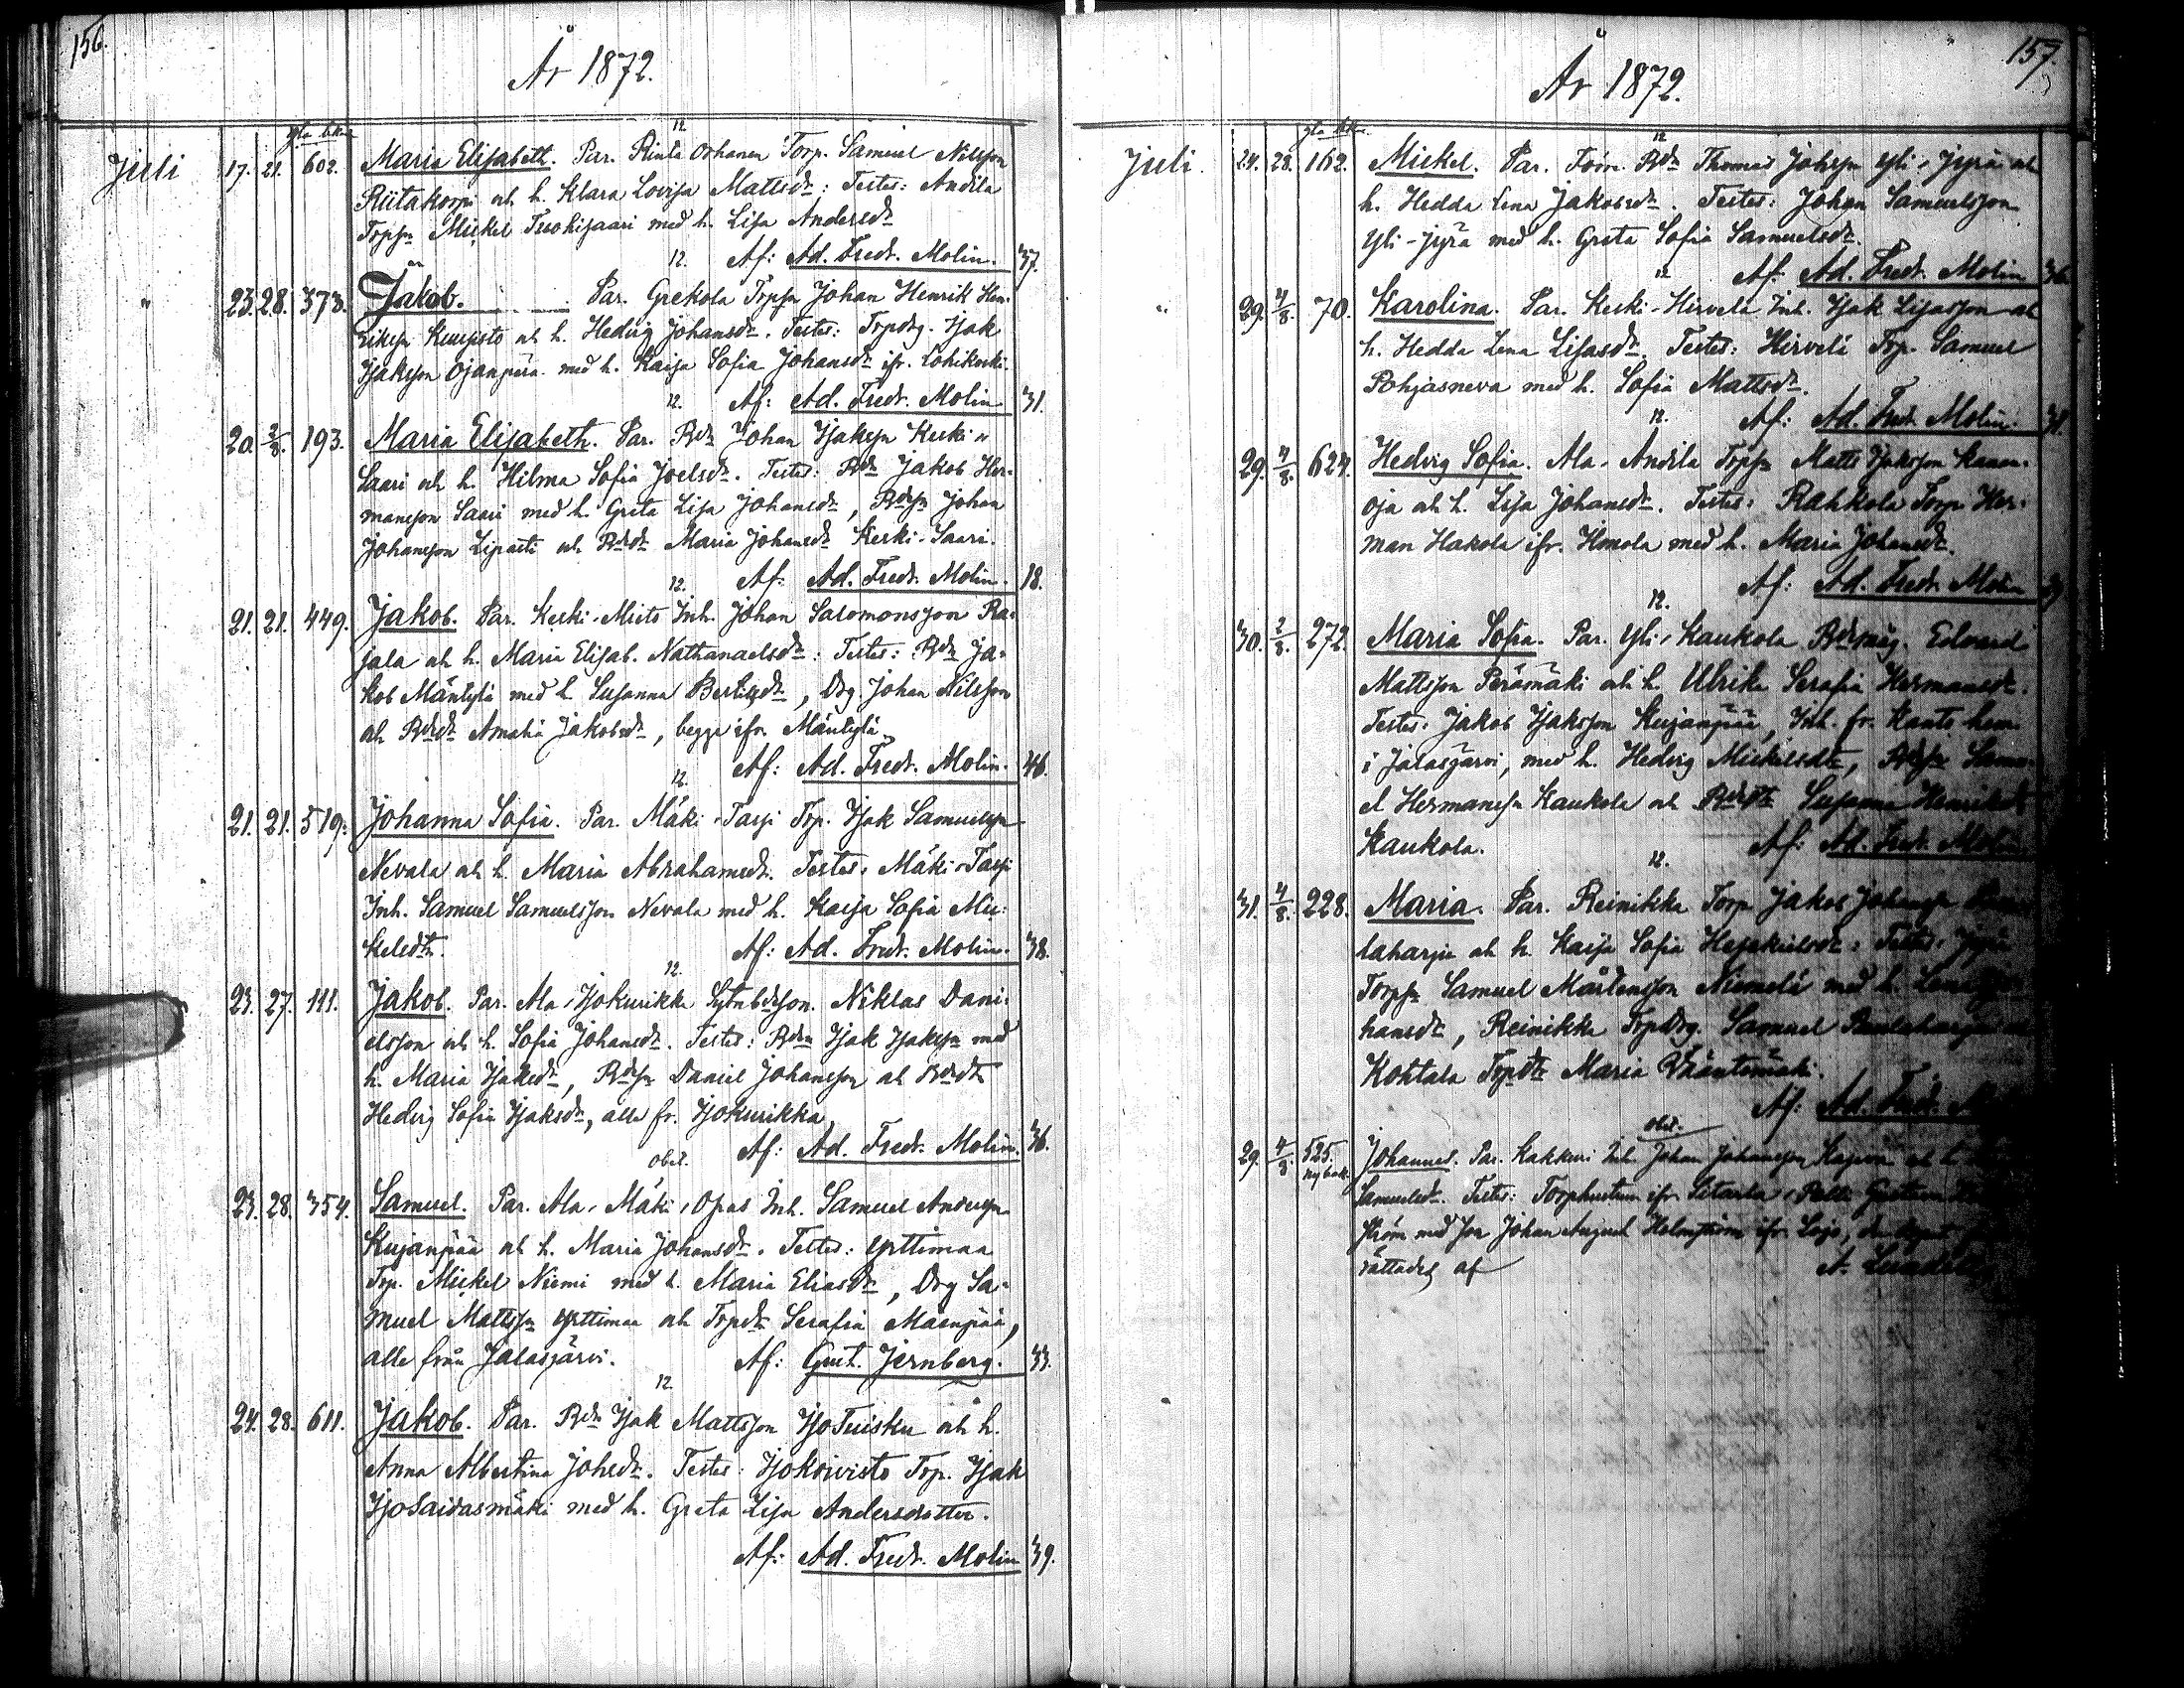 156.
År 1872.
gla bkn
12
Juli 17. 21. 602. Maria Elisabeth. Par. Rinta Orhanen Torp. Samuel Nilsson
Riitakorpi och h. Klara Lovisa Mattsdr: Testes: Andila
Torpsn Mickel Tuokisaari med h. Lisa Andersdr
12. Af: Ad. Fredr. Molin. 37.
" 23. 28. 373. Jakob. Par. Grekola Torpsn Johan Henrik Hen-
riksn Kempisto och h. Hedvig Johansdr. Testes: Torpdrg. Isak
Isaksson Ojanperä med h. Kaisa Sofia Johansdr ifr. Lohikoski.
12. Af: Ad. Fredr. Molin 31.
20. 2/8. 193. Maria Elisabeth. Par. Bdn Johan Isaksn Keski-
Saari och h. Hilma Sofia Joelsdr. Testes: Bdn Jakob Her-
mansson Saari med h. Greta Lisa Johansdr, Bdesn Johan
Johansson Liparti och Bdedr Maria Johansdr Keski-Saari.
12. Af: Ad. Fredr. Molin. 18.
21. 21. 449. Jakob. Par. Keski-Mieto Inh. Johan Salomonsson Ra-
jala och h. Maria Elisab. Nathanaelsdr: Testes: Bdn Ja-
kob Mäntylä med h. Susanna Bertilsdr, Drg. Johan Nilsson
och Bdedr Amalia Jakobsdr, begge ifr. Mäntylä.
12. Af: Ad. Fredr. Molin. 46.
21. 21. 519. Johanna Sofia. Par. Mäki-Passi Torp. Isak Samuelsn
Nevala och h. Maria Abrahamsdr. Testes: Mäki-Passi
Inh. Samuel Samuelsson Nevala med h. Kaisa Sofia Mic-
kelsdtr. Af: Ad. Fredr. Molin. 38.
12.
23. 27. 111. Jakob. Par. Ala-Ijokurikka Sytnbdesson. Niklas Dani-
elsson och h. Sofia Johansdr. Testes: Bdn Isak Isaksn med
h. Maria Isaksdr, Bdesn Daniel Johansson och Bdedtr
Hedvig Sofia Isaksdr, alla fr. Ijokurikka
obst. Af: Ad. Fredr. Molin. 36.
23. 28. 354. Samuel. Par. Ala-Mäki-Opas Inh. Samuel Andersn
Kujanpää och h. Maria Johansdr. Testes: Yrttimaa
Torp. Mickel Niemi med h. Maria Eliasdr, Drg Sa-
muel Mattssn Yrttimaa och Torpdr Serafia Mäenpää,
alla från Jalasjärvi. Af: Gust. Jernberg. 33.
12.
24. 28. 611. Jakob. Par. Bdn Isak Mattsson Iso Tuisku och h.
Anna Albertina Johsdr. Testes: Isokoivisto Torp. Isak
Isosaidasmäki med h. Greta Lisa Andersdotter.
Af: Ad. Fredr. Molin 39.
157.
År 1872.
gla bkn.
12
Juli. 24. 28. 162. Mickel. Par. Förm. Bdn Thomas Johssn Yli-Jyrä och
h. Hedda Lena Jakobsdr. Testes: Johan Samuelsson
Yli-Jyrä med h. Greta Sofia Samuelsdr.
12 Af: Ad. Fredr. Molin 36.
" 29. 4/8. 70. Karolina. Par. Keski-Hirvelä Inh. Isak Lisasson och
h. Hedda Lena Lisasdr. Testes: Hirvelä Torp. Samuel
Pohjasneva med h. Sofia Mattsdr.
12. Af: Ad. Fredr. Molin. 31.
29. 4/8. 624. Hedvig Sofia. Ala-Andila Torpsn Matts Isaksson Kaaan-
oja och h. Lisa Johansdr. Testes: Rahkola Torp. Her-
man Hakola ifr. Ilmola med h. Maria Johansdr.
Af: Ad. Fredr. Molin
12.
30. 2/8. 272. Maria Sofia. Par. Yli-Kaukola Bdemåg. Edvard
Mattsson Perämäki och h. Ulrika Serafia Hermansdr.
Testes: Jakob Isaksson Kujanpää, Inh. fr. Kanto hem.
i Jalasjärvi, med h. Hedvig Mickelsdtr, Bdesn Samu-
el Hermanssn Kaukola och Bdedtr Susanna Henriksdr
Kaukola. Af: Ad. Fredr. Molin
12.
31. 4/8. 228. Maria. Par. Reinikka Torp. Jakob Johanssn
laharju och h. Kaisa Sofia Hesekielsdr: Testes: Jyrä
Torpsn Samuel Mårtensson Niemelä med h. Lena Jo-
hansdr, Reinikka Torpdrg. Samuel Rautaharju
Kohtala Torpdtr Maria Vääntönmäki.
Af: Ad. Fredr. M
obst.
29. 4/8. 525. ny bok Johannes. Par. Kakkuri Inh. Johan Johansson Kajava och h.
Samuelsdr. Testes: Torphustrun ifr.
ström med son Johan August Holmström ifr. Lojo,
rättades af A.